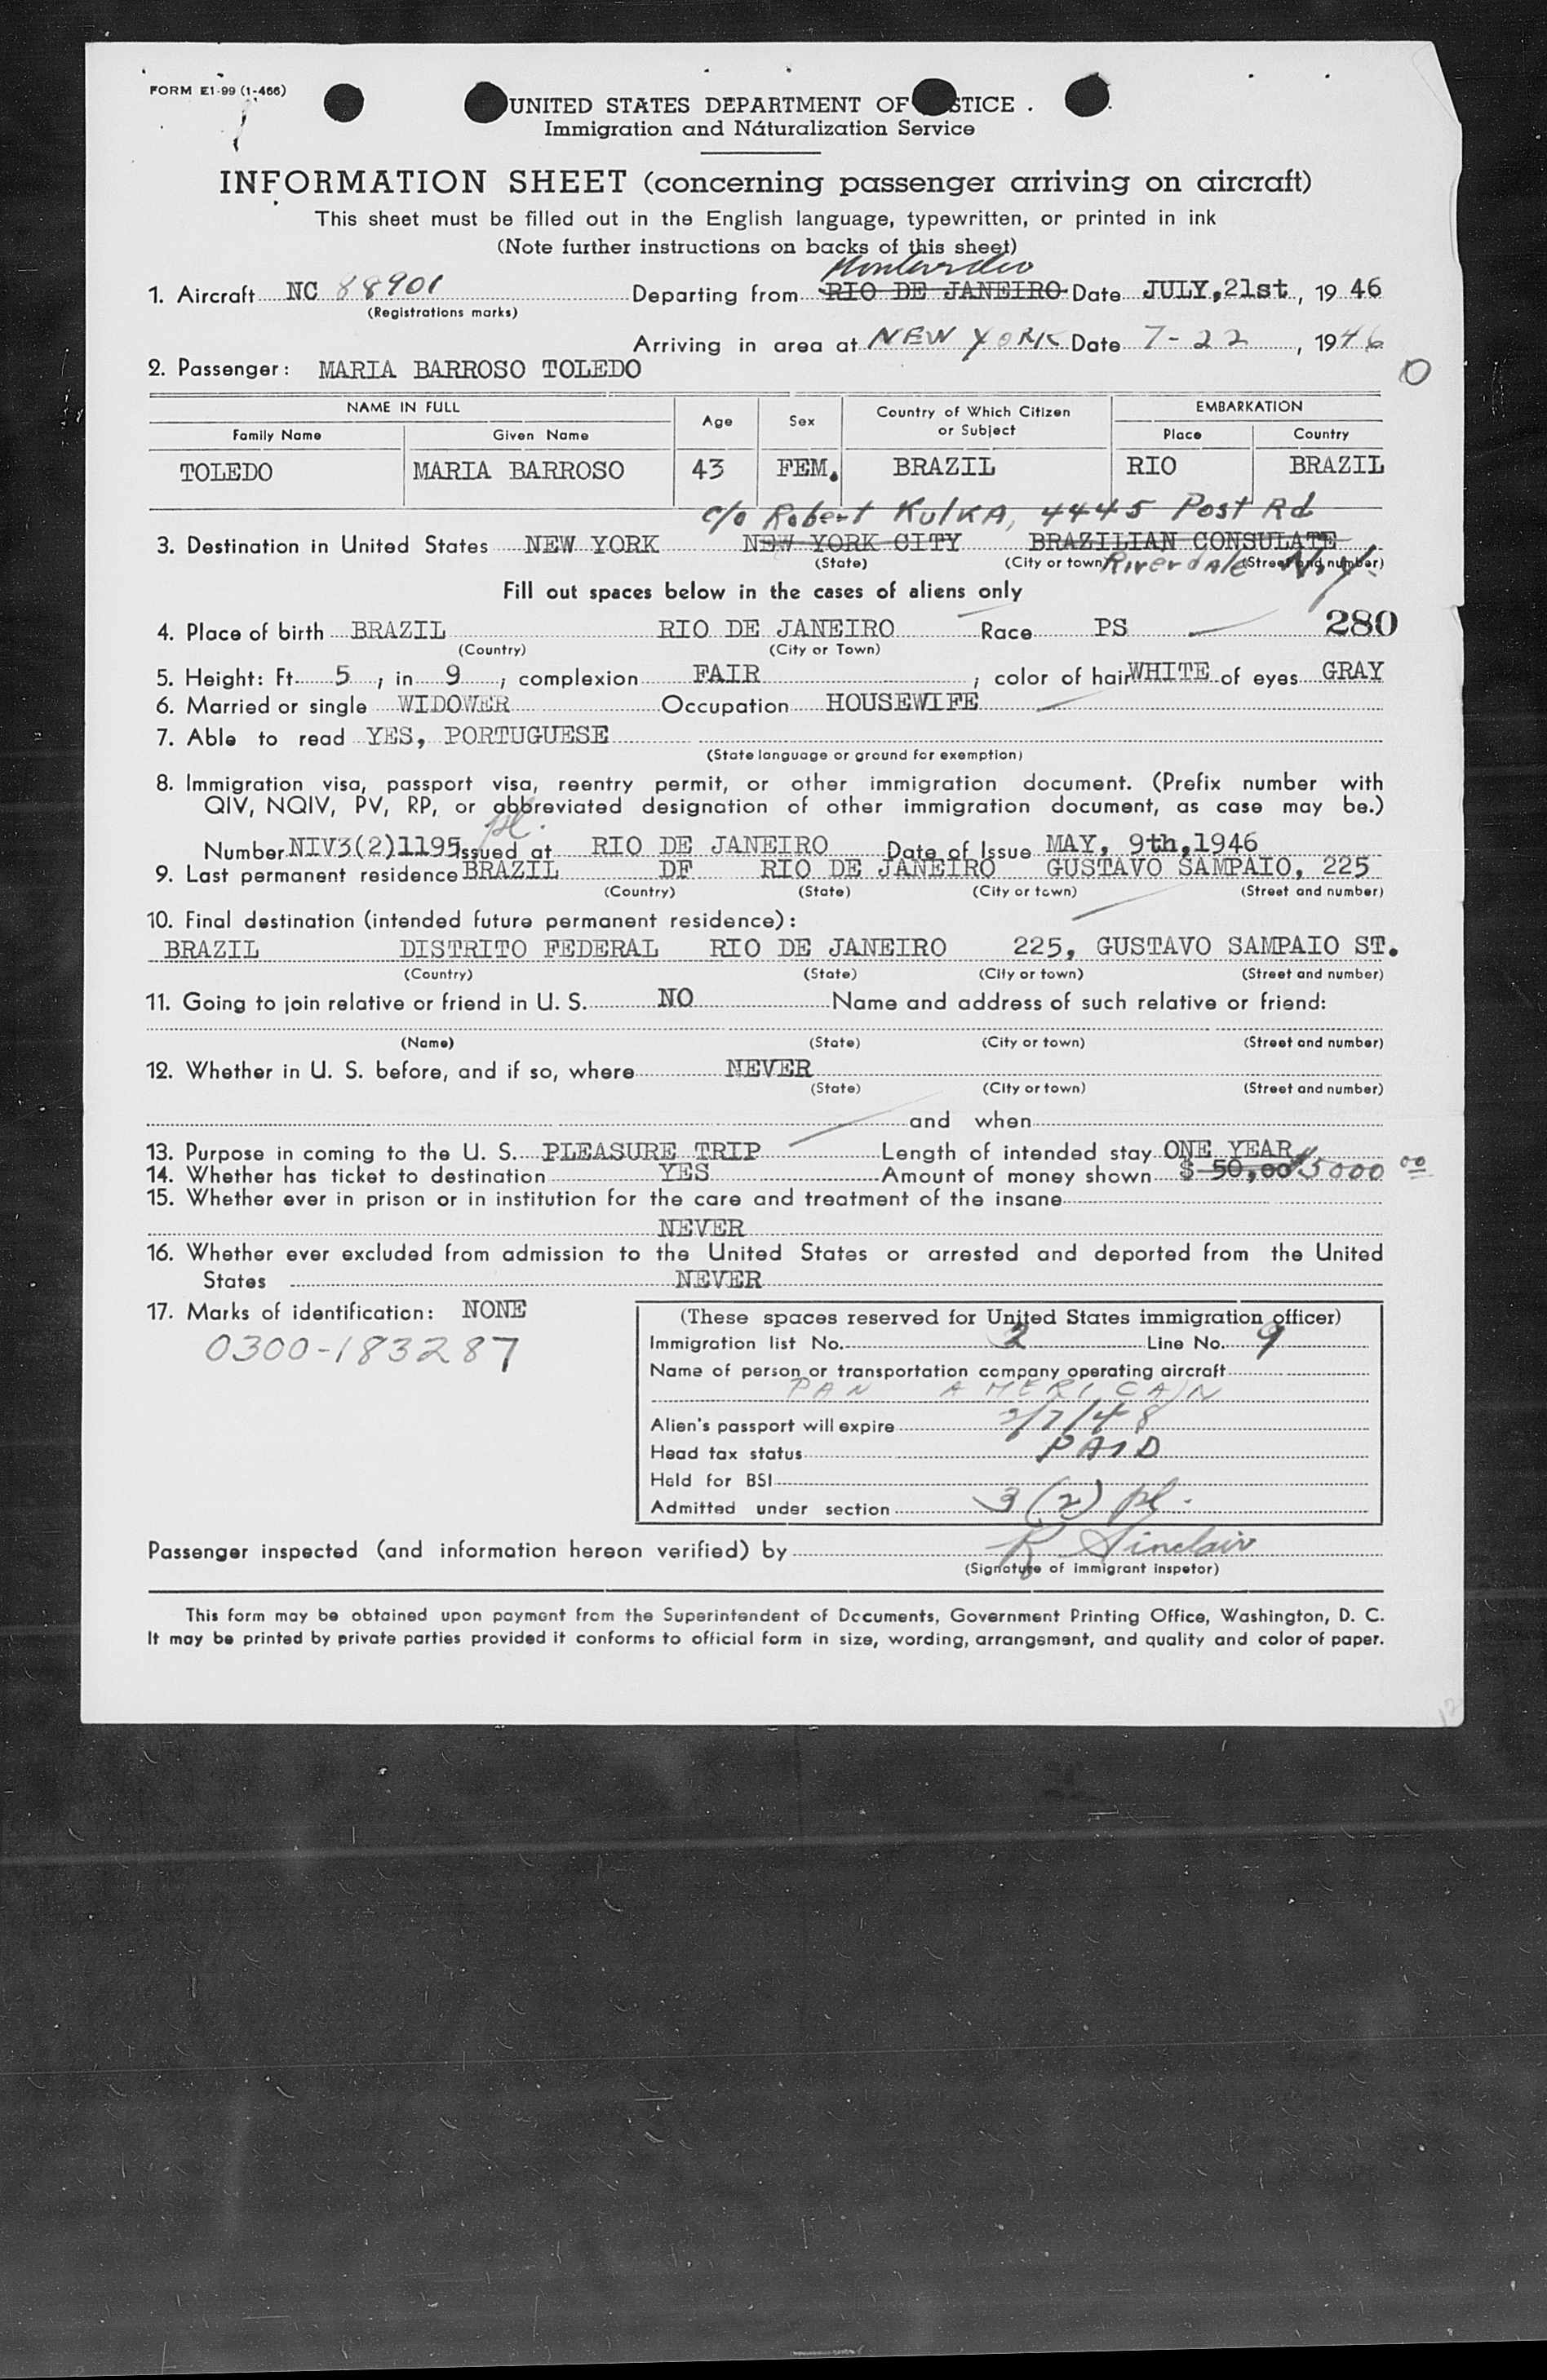 FORM E1-99 (1-466)
UNITED STATES DEPARTMENT OF JUSTICE
Immigration and Naturalization Service
INFORMATION SHEET (concerning passenger arriving on aircraft)
This sheet must be filled out in the English language, typewritten, or printed in ink
(Note further instructions on backs of this sheet)
Montevideo
1. Aircraft NC 88901 Departing from RIO DE JANEIRO Date JULY,21st, 19 46
(Registrations marks)
Arriving in area at NEW YORK Date 7-22, 1946
2. Passenger: MARIA BARROSO TOLEDO
O
NAME IN FULL Age Sex Country of Which Citizen or Subject EMBARKATION
Family Name Given Name Place Country
TOLEDO MARIA BARROSO 43 FEM. BRAZIL RIO BRAZIL
c/o Robert Kulka, 4445 Post Rd
3. Destination in United States NEW YORK NEW YORK CITY BRAZILIAN CONSULATE
(State) (City or town) Riverdale (Street and number) N.Y.
Fill out spaces below in the cases of aliens only
4. Place of birth BRAZIL RIO DE JANEIRO Race PS 280
(Country) (City or Town)
5. Height: Ft. 5, in 9, complexion FAIR; color of hair WHITE of eyes GRAY
6. Married or single WIDOWER Occupation HOUSEWIFE
7. Able to read YES, PORTUGUESE
(State language or ground for exemption)
8. Immigration visa, passport visa, reentry permit, or other immigration document. (Prefix number with
QIV, NQIV, PV, RP, or abbreviated designation of other immigration document, as case may be.)
pl.
Number NIV3(2)1195 issued at RIO DE JANEIRO Date of Issue MAY, 9th,1946
9. Last permanent residence BRAZIL DF RIO DE JANEIRO GUSTAVO SAMPAIO, 225
(Country) (State) (City or town) (Street and number)
10. Final destination (intended future permanent residence):
BRAZIL DISTRITO FEDERAL RIO DE JANEIRO 225, GUSTAVO SAMPAIO ST.
(Country) (State) (City or town) (Street and number)
11. Going to join relative or friend in U. S. NO Name and address of such relative or friend:
(Name) (State) (City or town) (Street and number)
12. Whether in U. S. before, and if so, where NEVER
(State) (City or town) (Street and number)
and when
13. Purpose in coming to the U. S. PLEASURE TRIP Length of intended stay ONE YEAR
14. Whether has ticket to destination YES Amount of money shown $ 50,00 $5000 00
15. Whether ever in prison or in institution for the care and treatment of the insane
NEVER
16. Whether ever excluded from admission to the United States or arrested and deported from the United
States NEVER
17. Marks of identification: NONE
0300-183287
(These spaces reserved for United States immigration officer)
Immigration list No. 2 Line No. 9
Name of person or transportation company operating aircraft
PAN AMERICAN
Alien's passport will expire 2/7/48
Head tax status PAID
Held for BSI
Admitted under section 3(2) pl.
Passenger inspected (and information hereon verified) by R Sinclair
(Signature of immigrant inspetor)
This form may be obtained upon payment from the Superintendent of Documents, Government Printing Office, Washington, D. C.
It may be printed by private parties provided it conforms to official form in size, wording, arrangement, and quality and color of paper.